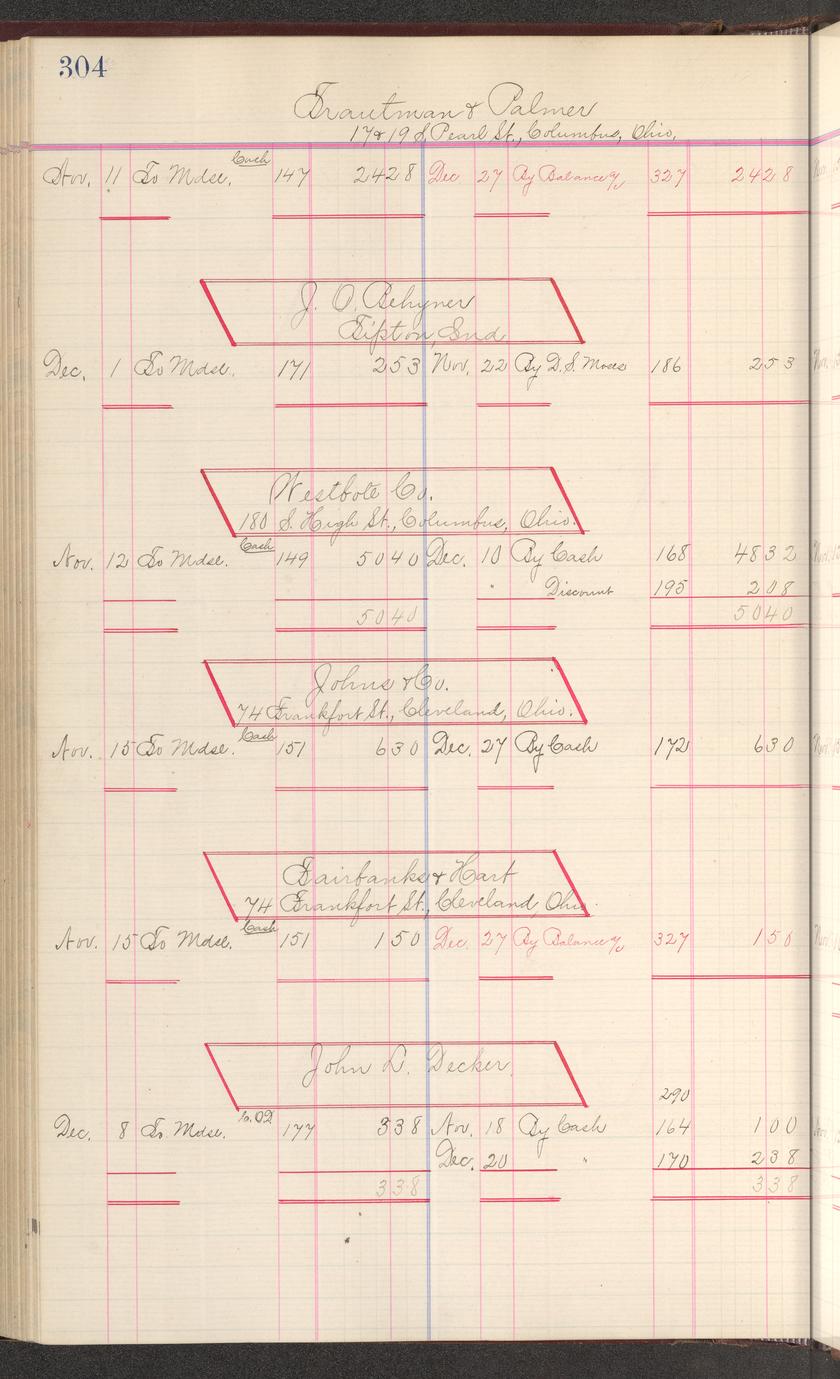 304
Trautman & Palmer
17 & 19 S. Pearl St., Columbus, Ohio,
Nov. 11 To Mdse. Cash 147 2428 Dec 27 By Balance a/c 327 2428
J. O. Behymer
Tipton, Ind.
Dec. 1 To Mdse. 171 253 Nov. 22 By D. S. Moses 186 253
Westbote Co.
180 S. High St., Columbus, Ohio.
Nov. 12 To Mdse. Cash 149 5040 Dec. 10 By Cash 168 4832
" Discount 195 208
5040 5040
Johns & Co.
74 Frankfort St., Cleveland, Ohio.
Nov. 15 To Mdse. Cash 151 630 Dec. 27 By Cash 172 630
Fairbanks & Hart
74 Frankfort St., Cleveland, Ohio.
Nov. 15 To Mdse. Cash 151 150 Dec. 27 By Balance a/c 327 150
John L. Decker.
290
Dec. 8 To Mdse. C.O.D. 177 338 Nov. 18 By Cash 164 100
Dec. 20 " 170 238
338 338